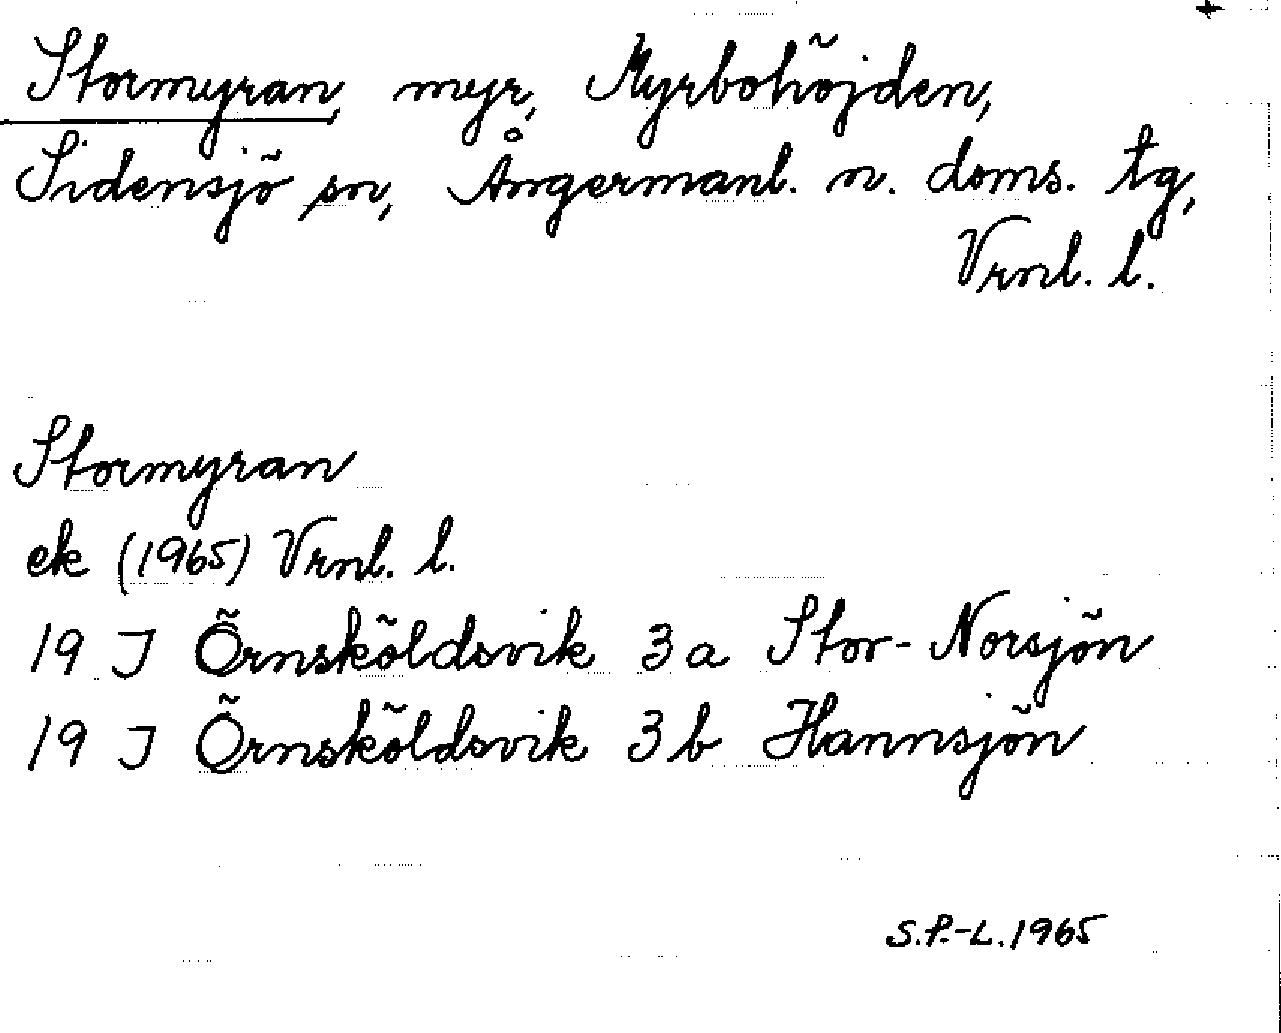 Stormyran, myr, Myrbohöjden,
Sidensjö sn, Ångermanl. n. doms. tg,
Vrnl. l.
Stormyran
ek (1965) Vrnl. l.
19 J Örnsköldsvik 3a Stor-Norsjön
19 J Örnsköldsvik 3b Hannsjön
S.P.-L. 1965